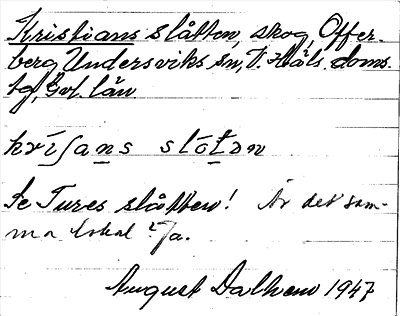 Kristians slåtten, skog, Offer-
berg, Undersviks sn, V. Häls. doms.
tg, Gvl. län
krisans slåtən
Se Tures slåtten! Är det sam-
ma lokal? Ja.
August Dalhem 1947